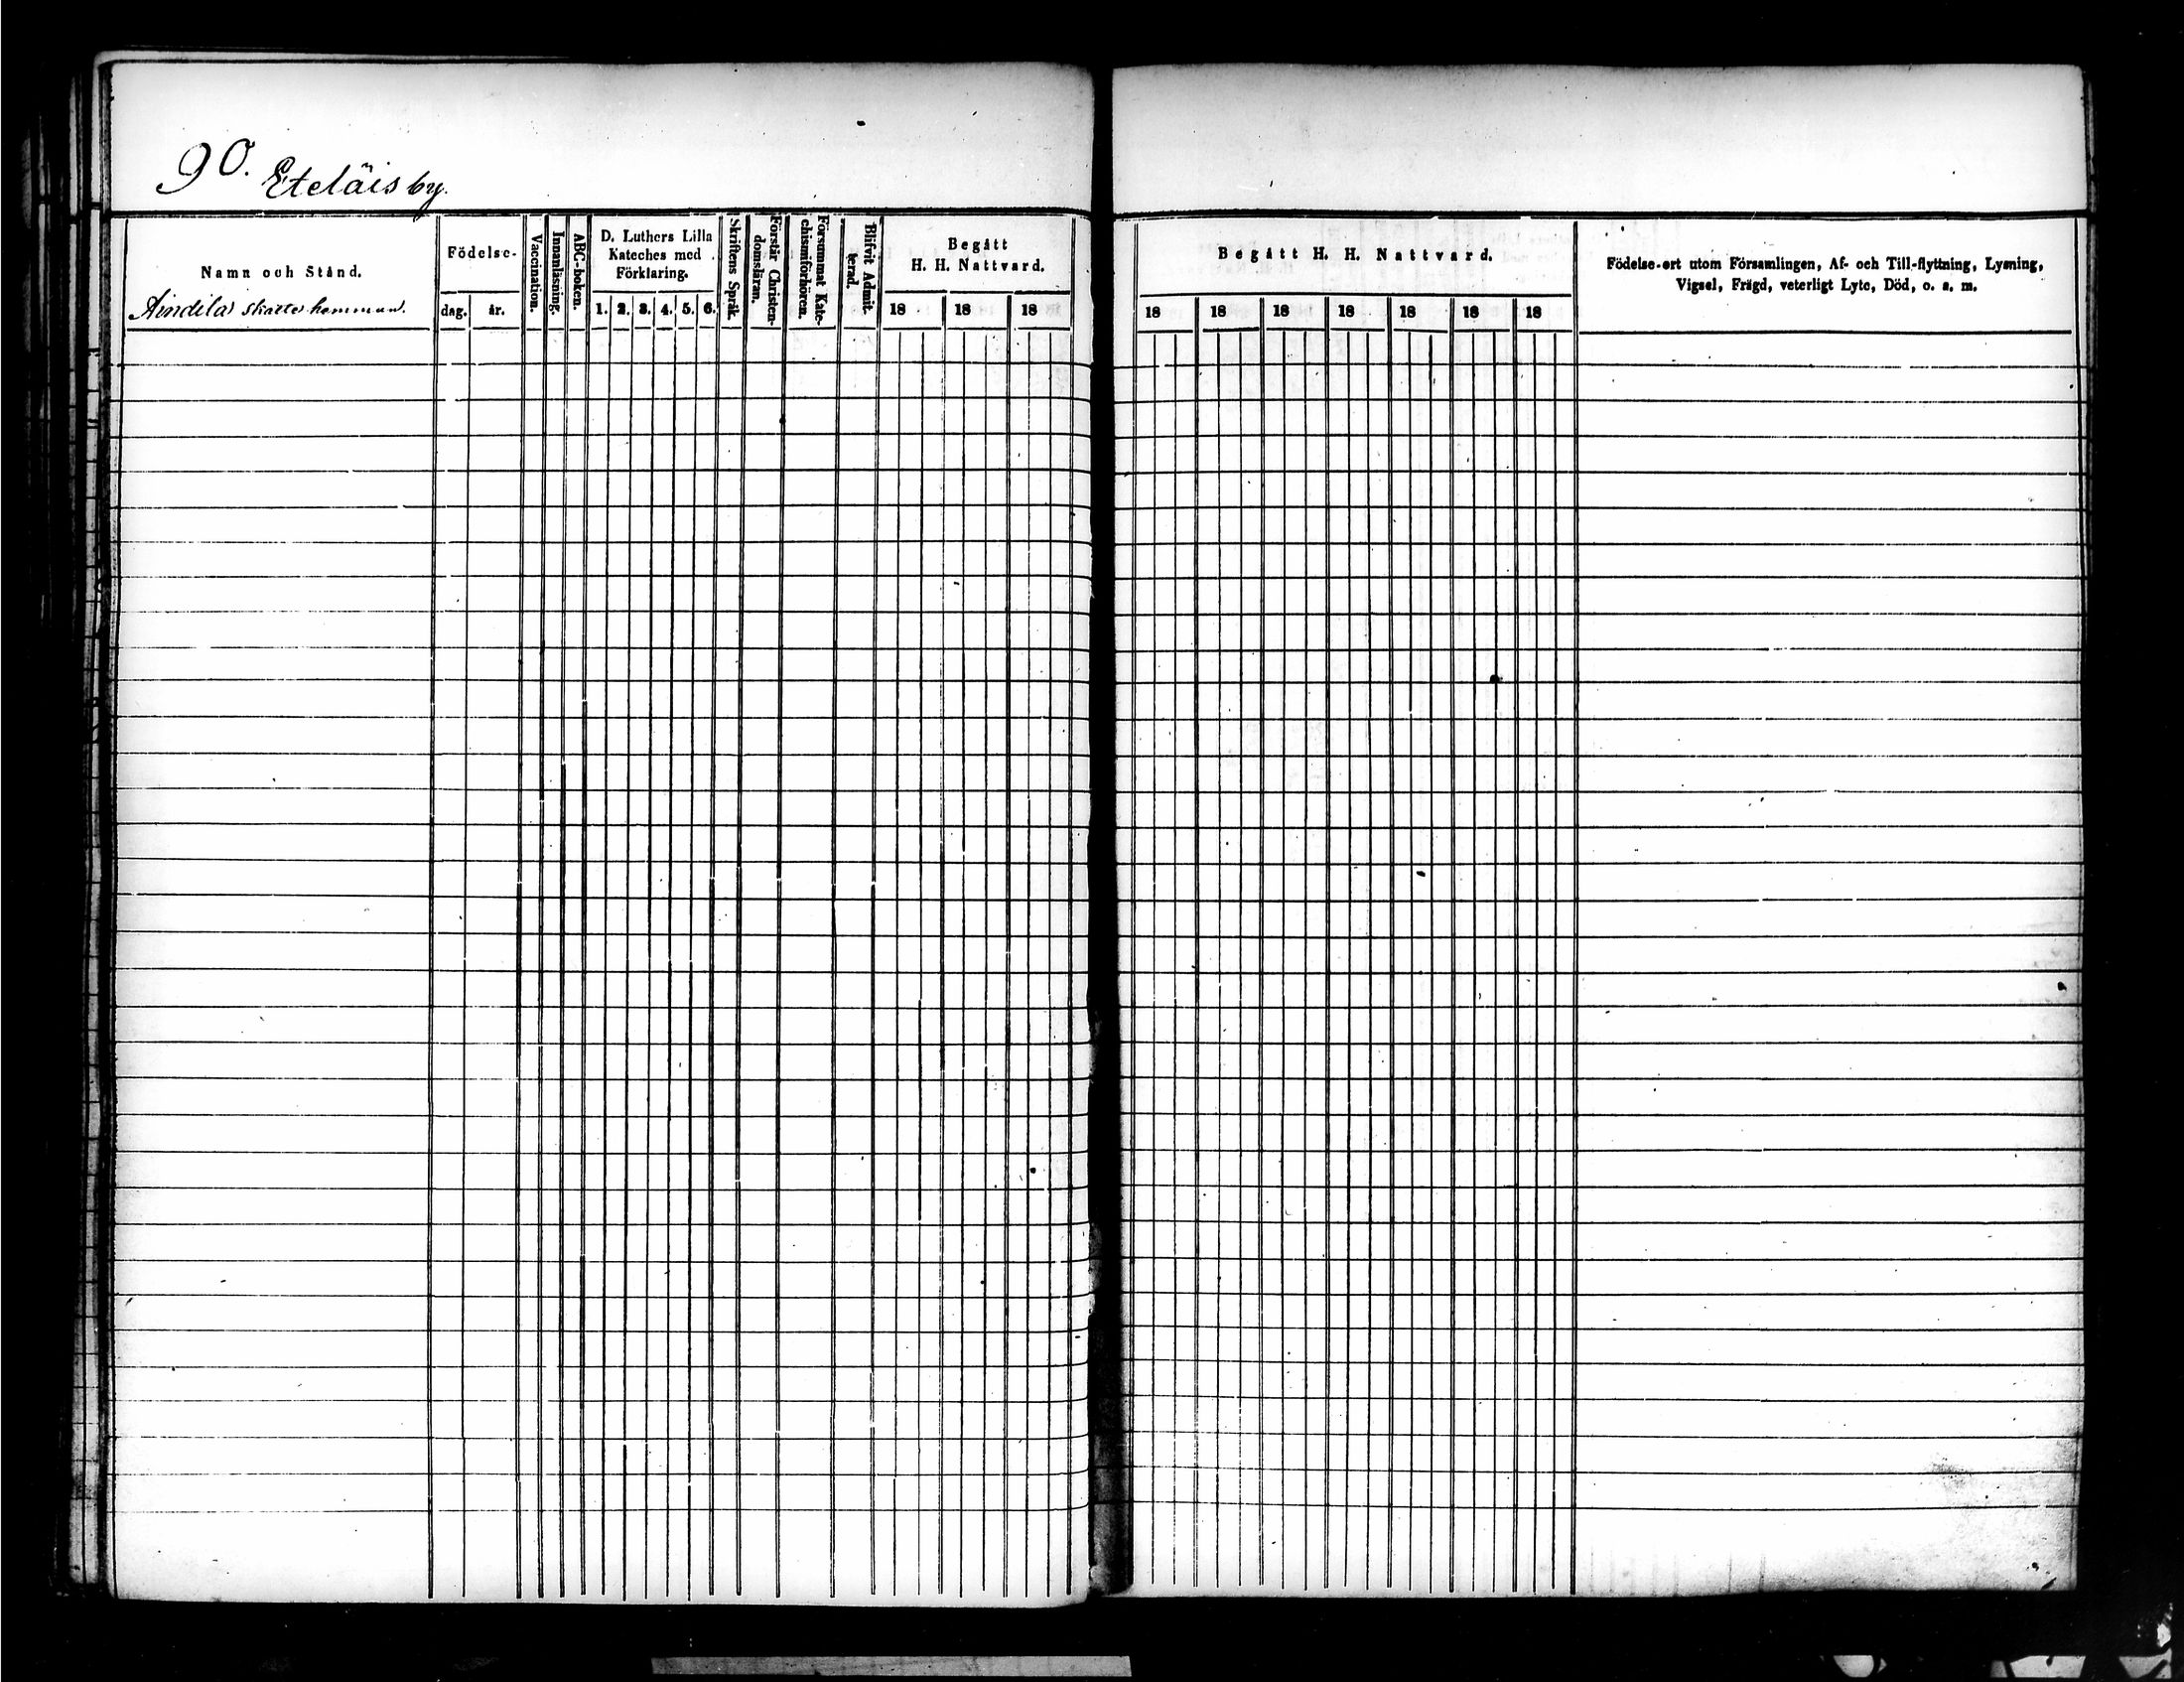 90. Eteläis by.
Namn och Stånd.
Aindila skatte hemman.
Födelse-
dag. år.
Vaccination.
Innanläsning.
ABC-boken.
D. Luthers Lilla
Kateches med
Förklaring.
1. 2. 3. 4. 5. 6.
Skriftens Språk.
Förstår Christen-
domsläran.
Försummat Kate-
chismiförhören.
Blifvit Admit-
terad.
Begått
H. H. Nattvard.
18 18 18
Begått H. H. Nattvard.
18 18 18 18 18 18 18
Födelse-ort utom Församlingen, Af- och Till-flyttning, Lysning,
Vigsel, Frägd, veterligt Lyte, Död, o. s. m.